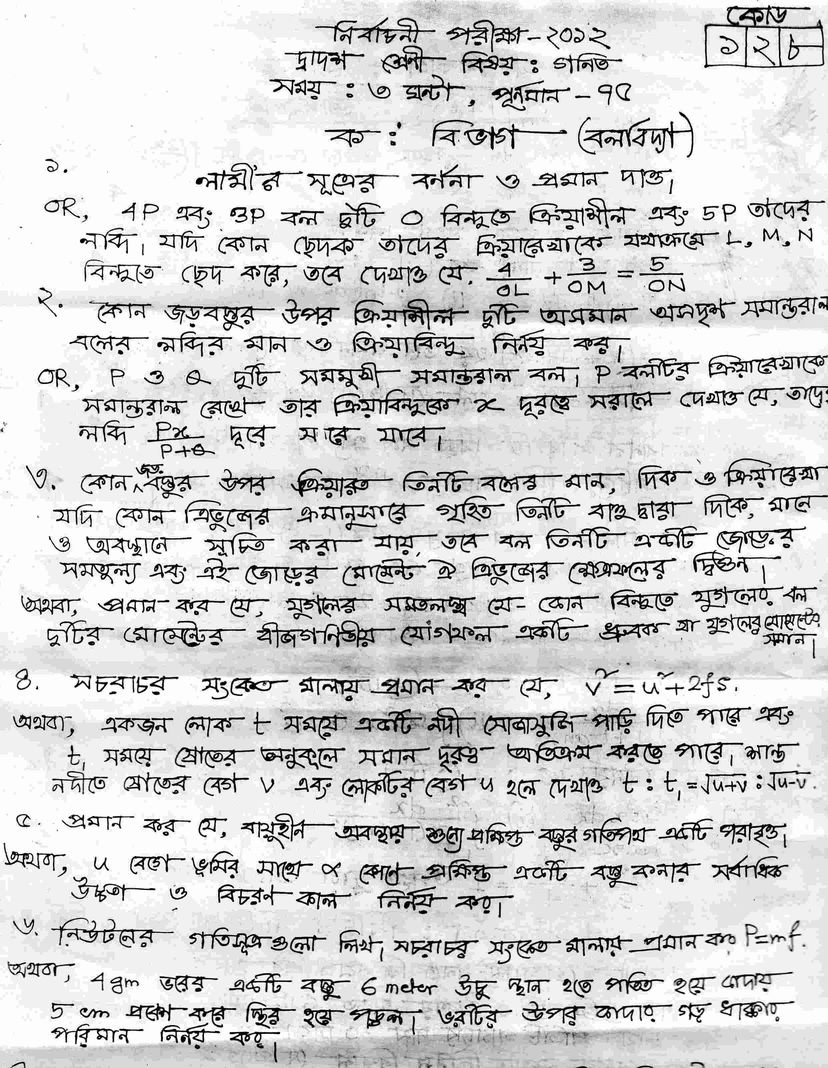 কোড
১২৮
নির্বাচনী পরীক্ষা-২০১২
দ্বাদশ শ্রেণী বিষয় : গনিত
সময় : ৩ ঘন্টা , পূর্নমান - ৭৫
ক : বিভাগ (বলবিদ্যা)
১.
লামীর সূত্রের বর্ননা ও প্রমান দাও।
OR, 4P এবং 3P বল দুটি O বিন্দুতে ক্রিয়াশীল এবং 5P তাদের
লব্দি। যদি কোন ছেদক তাদের ক্রিয়ারেখাকে যথাক্রমে L, M, N
বিন্দুতে ছেদ করে, তবে দেখাও যে. 4/OL + 3/OM = 5/ON
২. কোন জড়বস্তুর উপর ক্রিয়াশীল দুটি অসমান অসদৃশ সমান্তরাল
বলের লব্দির মান ও ক্রিয়াবিন্দু নির্নয় কর।
OR, P ও Q দুটি সমমুখী সমান্তরাল বল। P বলটির ক্রিয়ারেখাকে
সমান্তরাল রেখে তার ক্রিয়াবিন্দুকে x দূরত্বে সরালে দেখাও যে, তাদের
লব্দি Px/P+Q দূরে সরে যাবে।
৩. কোন জড় বস্তুর উপর ক্রিয়ারত তিনটি বলের মান, দিক ও ক্রিয়ারেখা
যদি কোন ত্রিভুজের ক্রমানুসারে গৃহিত তিনটি বাহু দ্বারা দিকে, মানে
ও অবস্থানে সূচিত করা যায়, তবে বল তিনটি একটি জোড়ের
সমতুল্য এবং এই জোড়ের মোমেন্ট ঐ ত্রিভুজের ক্ষেত্রফলের দ্বিগুন।
অথবা, প্রমান কর যে, যুগলের সমতলস্থ যে-কোন বিন্দুতে যুগলের বল
দুটির মোমেন্টের বীজগানিতীয় যোগফল একটি ধ্রুবক যা যুগলের মোমেন্টের সমান।
৪. সচরাচর সংকেত মালায় প্রমান কর যে, v² = u² + 2fs.
অথবা, একজন লোক t সময়ে একটি নদী সোজাসুজি পাড়ি দিতে পারে এবং
t₁ সময়ে স্রোতের অনুকূলে সমান দূরত্ব অতিক্রম করতে পারে। শান্ত
নদীতে স্রোতের বেগ v এবং লোকটির বেগ u হলে দেখাও t : t₁ = √u+v : √u-v.
৫. প্রমান কর যে, বায়ুহীন অবস্থায় শুন্যে প্রক্ষিপ্ত বস্তুর গতিপথ একটি পরাবৃত্ত।
অথবা, u বেগে ভূমির সাথে α কোণে প্রক্ষিপ্ত একটি বস্তু কনার সর্বাধিক
উচ্চতা ও বিচরণ কাল নির্নয় কর।
৬. নিউটনের গতিসূত্র গুলো লিখ। সচরাচর সংকেত মালায় প্রমান কর P=mf.
অথবা, 4 gm ভরের একটি বস্তু 6 meter উচু স্থান হতে পতিত হয়ে কাদায়
5 cm প্রবেশ করে স্থির হয়ে পড়ল। ভরটির উপর কাদার গড় ধাক্কার
পরিমান নির্নয় কর।